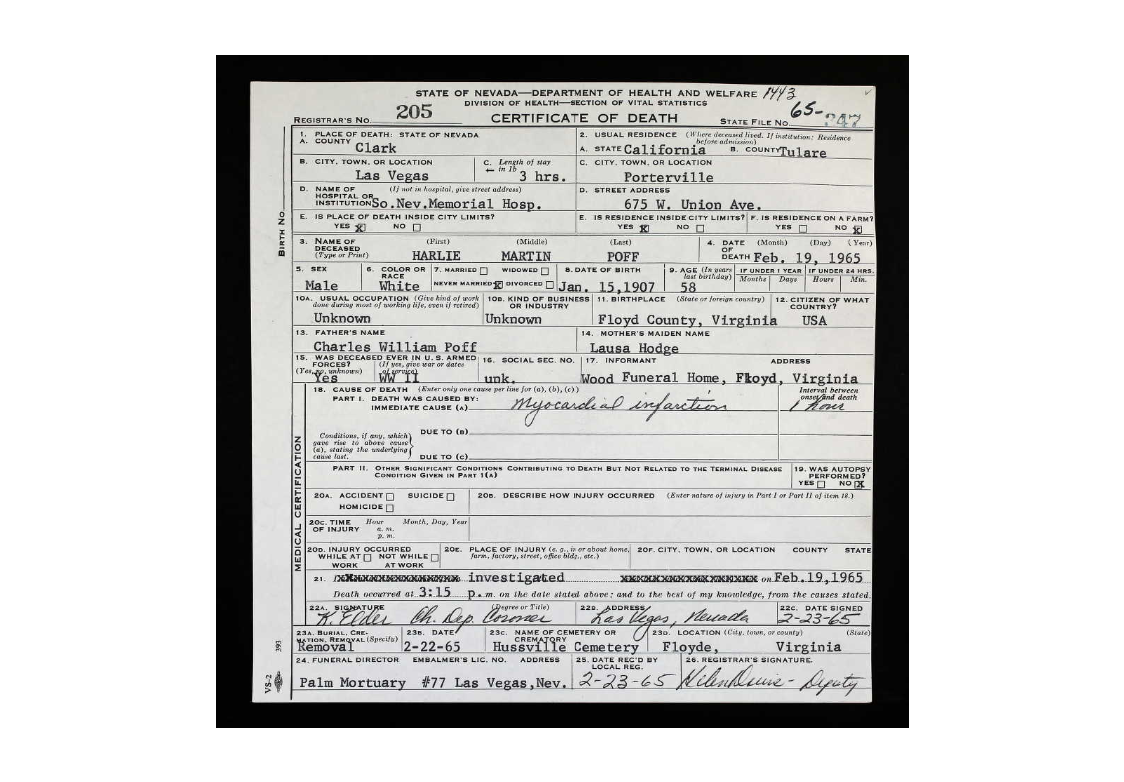 STATE OF NEVADA—DEPARTMENT OF HEALTH AND WELFARE 1443
DIVISION OF HEALTH—SECTION OF VITAL STATISTICS
REGISTRAR'S NO. 205 CERTIFICATE OF DEATH STATE FILE NO. 65-
BIRTH NO.
1. PLACE OF DEATH: STATE OF NEVADA
A. COUNTY Clark
2. USUAL RESIDENCE (Where deceased lived. If institution: Residence before admission)
A. STATE California B. COUNTY Tulare
B. CITY, TOWN, OR LOCATION Las Vegas
C. Length of stay in 1b 3 hrs.
C. CITY, TOWN, OR LOCATION
Porterville
D. NAME OF HOSPITAL OR INSTITUTION (If not in hospital, give street address)
So.Nev.Memorial Hosp.
D. STREET ADDRESS
675 W. Union Ave.
E. IS PLACE OF DEATH INSIDE CITY LIMITS?
YES X NO
E. IS RESIDENCE INSIDE CITY LIMITS?
YES X NO
F. IS RESIDENCE ON A FARM?
YES NO X
3. NAME OF DECEASED (Type or Print) (First) (Middle) (Last)
HARLIE MARTIN POFF
4. DATE OF DEATH (Month) (Day) (Year)
Feb. 19, 1965
5. SEX
Male
6. COLOR OR RACE
White
7. MARRIED WIDOWED
NEVER MARRIED X DIVORCED
8. DATE OF BIRTH
Jan. 15,1907
9. AGE (In years last birthday)
58
IF UNDER 1 YEAR IF UNDER 24 HRS.
Months Days Hours Min.
10A. USUAL OCCUPATION (Give kind of work done during most of working life, even if retired)
Unknown
10B. KIND OF BUSINESS OR INDUSTRY
Unknown
11. BIRTHPLACE (State or foreign country)
Floyd County, Virginia
12. CITIZEN OF WHAT COUNTRY?
USA
13. FATHER'S NAME
Charles William Poff
14. MOTHER'S MAIDEN NAME
Lausa Hodge
15. WAS DECEASED EVER IN U. S. ARMED FORCES?
(Yes, no, unknown) (If yes, give war or dates of service)
Yes WW II
16. SOCIAL SEC. NO.
unk.
17. INFORMANT ADDRESS
Wood Funeral Home, Floyd, Virginia
MEDICAL CERTIFICATION
18. CAUSE OF DEATH (Enter only one cause per line for (a), (b), (c))
PART I. DEATH WAS CAUSED BY:
IMMEDIATE CAUSE (A) Myocardial infarction
Interval between onset and death
1 hour
Conditions, if any, which gave rise to above cause (a), stating the underlying cause last.
DUE TO (B)
DUE TO (C)
PART II. OTHER SIGNIFICANT CONDITIONS CONTRIBUTING TO DEATH BUT NOT RELATED TO THE TERMINAL DISEASE
CONDITION GIVEN IN PART 1(A)
19. WAS AUTOPSY PERFORMED?
YES NO X
20A. ACCIDENT SUICIDE
HOMICIDE
20B. DESCRIBE HOW INJURY OCCURRED (Enter nature of injury in Part I or Part II of item 18.)
20C. TIME OF INJURY Hour Month, Day, Year
a. m.
p. m.
20D. INJURY OCCURRED
WHILE AT WORK NOT WHILE AT WORK
20E. PLACE OF INJURY (e. g., in or about home, farm, factory, street, office bldg., etc.)
20F. CITY, TOWN, OR LOCATION COUNTY STATE
21. investigated on Feb.19,1965
Death occurred at 3:15 p.m. on the date stated above; and to the best of my knowledge, from the causes stated.
22A. SIGNATURE (Degree or Title)
K. Elder Ch. Dep. Coroner
22B. ADDRESS
Las Vegas, Nevada
22C. DATE SIGNED
2-23-65
23A. BURIAL, CREMATION, REMOVAL (Specify)
Removal
23B. DATE
2-22-65
23C. NAME OF CEMETERY OR CREMATORY
Hussville Cemetery
23D. LOCATION (City, town, or county) (State)
Floyde, Virginia
24. FUNERAL DIRECTOR EMBALMER'S LIC. NO. ADDRESS
Palm Mortuary #77 Las Vegas,Nev.
25. DATE REC'D BY LOCAL REG.
2-23-65
26. REGISTRAR'S SIGNATURE.
Deputy
VS-2
393